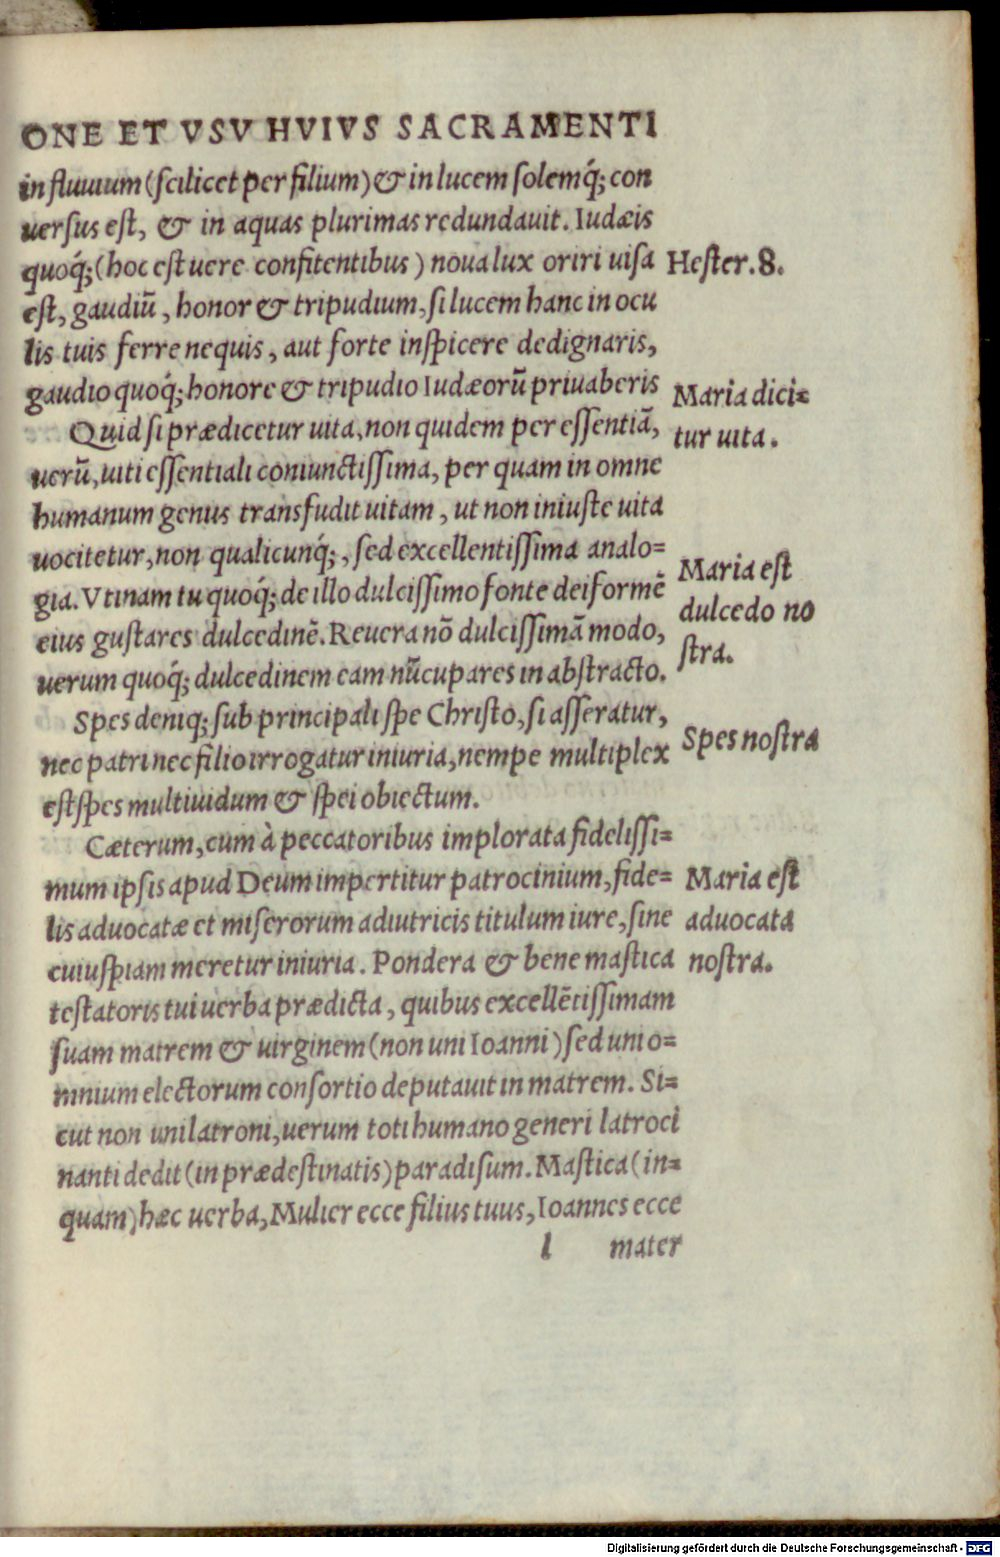 ONE ET VSV HVIVS SACRAMENTI
in fluuium (scilicet per filium) & in lucem solemq́; con
uersus est, & in aquas plurimas redundauit. Iudæis
quoq́; (hoc est uere confitentibus) noua lux oriri uisa
Hester. 8.
est, gaudiū, honor & tripudium, si lucem hanc in ocu
lis tuis ferre nequis, aut forte inspicere dedignaris,
gaudio quoq́; honore & tripudio Iudæorū priuaberis
Maria dici=
tur uita.
Quid si prædicetur uita, non quidem per essentiā,
uerū, uiti essentiali coniunctissima, per quam in omne
humanum genus transfudit uitam, ut non iniuste uita
uocitetur, non qualicunq́;, sed excellentissima analo=
gia. Vtinam tu quoq́; de illo dulcissimo fonte deiformē
Maria est
dulcedo no
stra.
eius gustares dulcedinē. Reuera nō dulcissimā modo,
uerum quoq́; dulcedinem eam nūcupares in abstracto.
Spes deniq; sub principali spe Christo, si asseratur,
nec patri nec filio irrogatur iniuria, nempe multiplex
Spes nostra
est spes multiuidum & spei obiectum.
Cæterum, cum à peccatoribus implorata fidelissi=
mum ipsis apud Deum impertitur patrocinium, fide=
Maria est
aduocata
nostra.
lis aduocatæ et miserorum adiutricis titulum iure, sine
cuiuspiam meretur iniuria. Pondera & bene mastica
testatoris tui uerba prædicta, quibus excellētissimam
suam matrem & uirginem (non uni Ioanni) sed uni o=
mnium electorum consortio deputauit in matrem. Si=
cut non uni latroni, uerum toti humano generi latroci
nanti dedit (in prædestinatis) paradisum. Mastica (in=
quam) hæc uerba, Mulier ecce filius tuus, Ioannes ecce
l mater
Digitalisierung gefördert durch die Deutsche Forschungsgemeinschaft - DFG